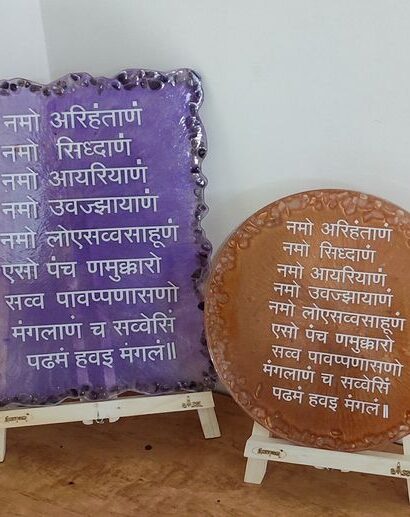 नमो अरिहंताणं
नमो सिध्दाणं
नमो आयरियाणं
नमो उवज्झायाणं
नमो लोएसव्वसाहूणं
एसो पंच णमुक्कारो
सव्व पावप्पणासणो
मंगलाणं च सव्वेसिं
पढमं हवइ मंगलं॥
नमो अरिहंताणं
नमो सिध्दाणं
नमो आयरियाणं
नमो उवज्झायाणं
नमो लोएसव्वसाहूणं
एसो पंच णमुक्कारो
सव्व पावप्पणासणो
मंगलाणं च सव्वेसिं
पढमं हवइ मंगलं॥